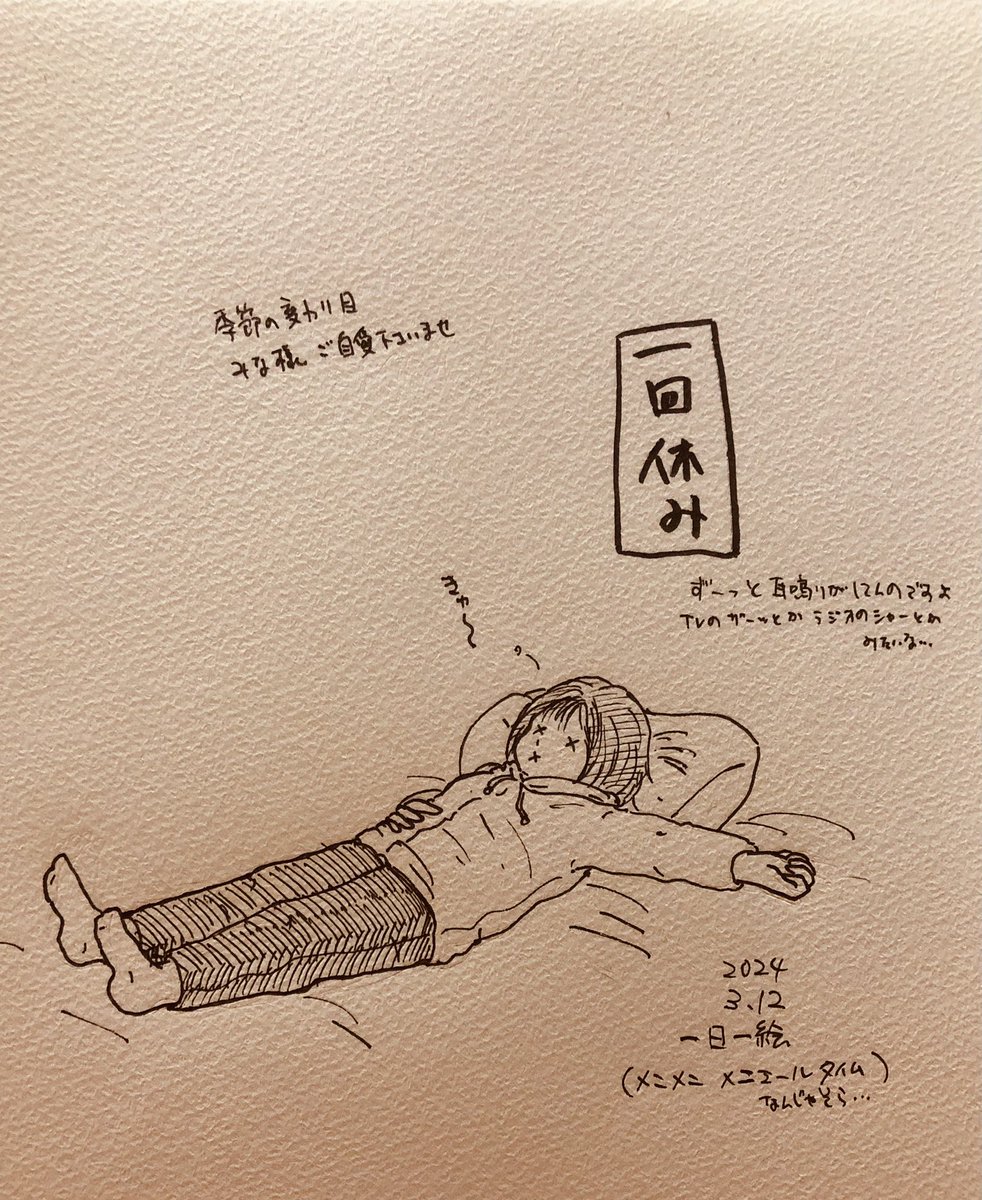 季節の変わり目
みな様 ご自愛下さいませ
一回休み
ずーっと耳鳴りがしてんのですよ
TVのザーッとか ラジオのシャーとか
みたいな…
きゅ〜
2024
3.12
一日一絵
(メニメニ メニエールタイム)
なんじゃそら…